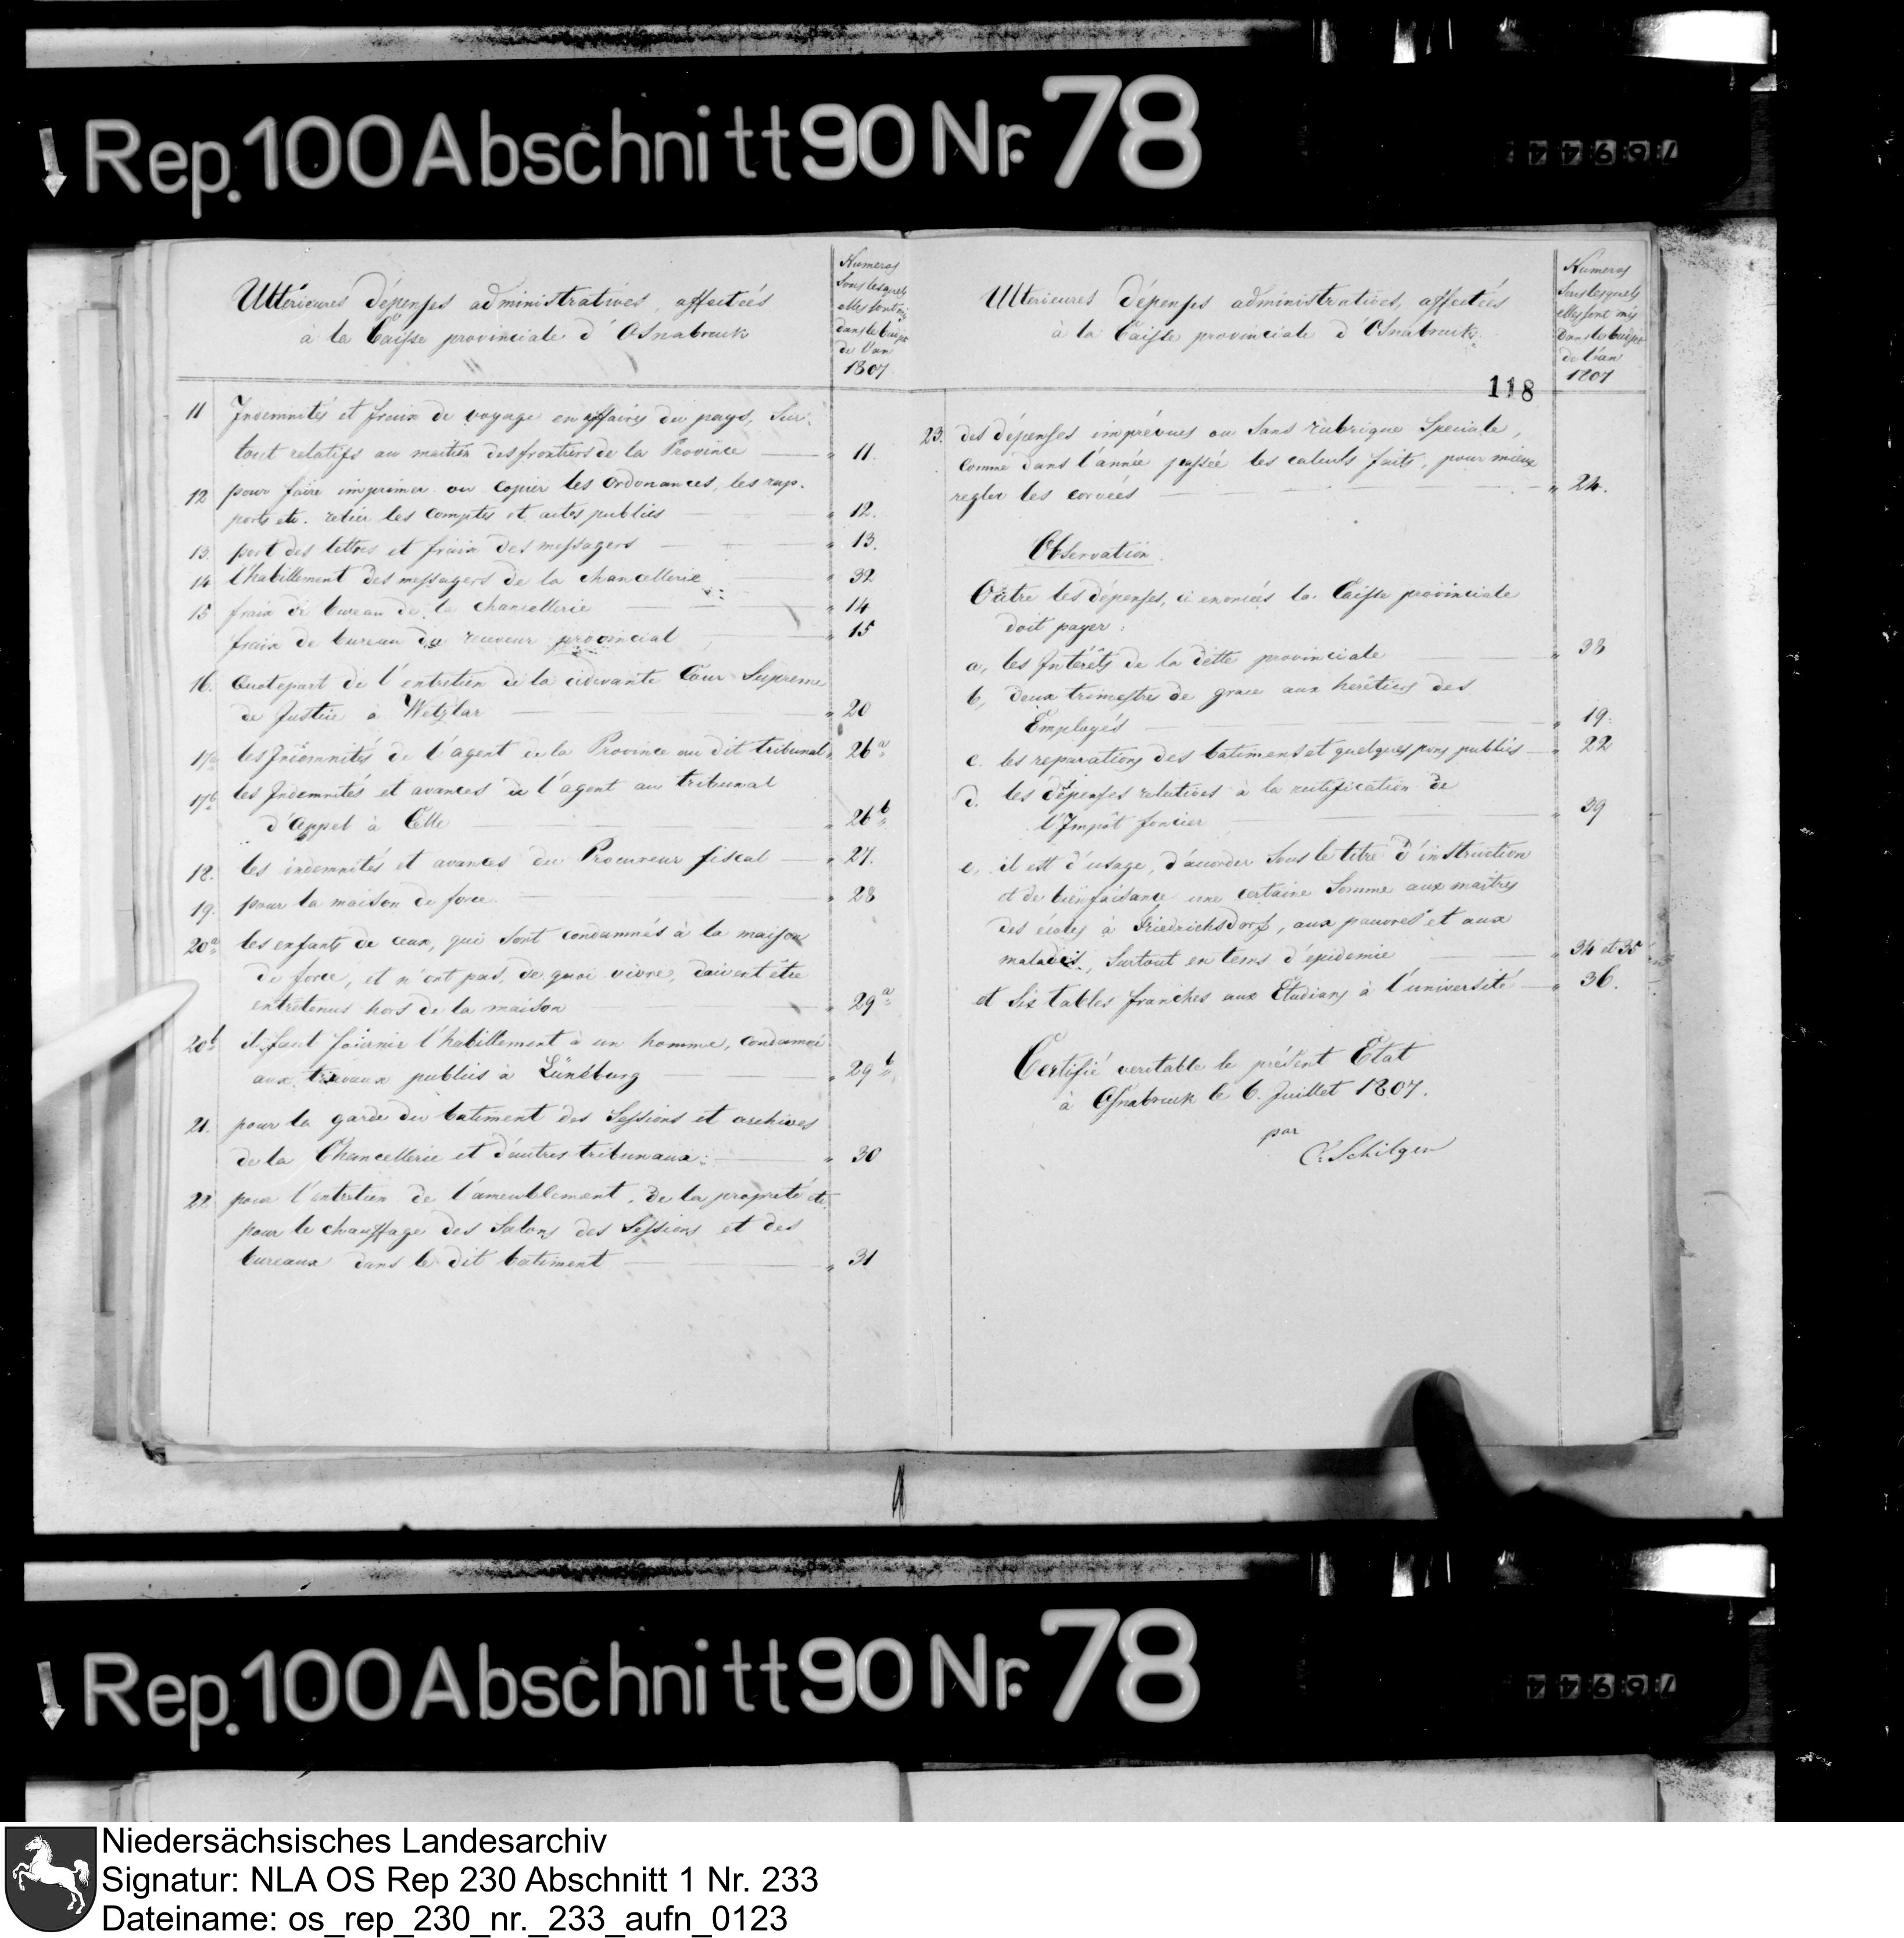 Rep. 100 Abschnitt 90 Nr. 78
76944
Ultérieures dépenses administratives, affectées
à la Caisse provinciale d'Osnabruck
Numeros
sous lesquels
elles sont mis
dans le budjet
de l'an
1807
11 Indemnités et fraix de voyage en affaires du pays, sur-
tout relatifs au maitien des frontiers de la Province " 11.
12 pour faire imprimer ou copier les Ordonances, les rap-
ports etc. relier les comptes et actes publics " 12.
13. port des lettres et fraix des messagers " 13.
14 l'habillement des messagers de la chancellerie " 32
15 fraix de bureau de la chancellerie " 14
fraix de bureau du receveur provincial " 15
16. Quotepart de l'entretien de la cidevante Cour Supreme
de Justice à Wetzlar " 20
17a les Indemnités de l'agent de la Province au dit tribunal " 26a
17b les Indemnités et avances de l'agent au tribunal
d'Appel à Celle " 26b
18. les indemnités et avances du Procureur fiscal " 27.
19. pour la maison de force " 28
20a les enfants de ceux, qui sont condamnés à la maison
de force, et n'ont pas de quoi vivre, doivent être
entretenus hors de la maison " 29a
20b il faut fournir l'habillement à un homme, condamné
aux travaux publics à Lünëburg " 29b
21. pour la garde du batiment des Sessions et archives
de la Chancellerie et d'autres tribunaux " 30
22 pour l'entretien de l'ameublement, de la propreté etc
pour le chauffage des Salons des Sessions et des
bureaux dans le dit batiment " 31
Ulterieures dépenses administratives, affectées
à la Caisse provinciale d'Osnabruck
Numeros
sous lesquels
elles sont mis
dans le budjet
de l'an
1807
118
23. des dépenses imprévues ou sans rubrique speciale,
comme dans l'année passée les calculs faits, pour mieux
regler les corvées " 24.
Observation.
Outre les dépenses, ci enoncées la Caisse provinciale
doit payer:
a, les Intérêts de la dette provinciale " 38
b, deux trimestres de grace aux heritiers des
Employés " 19.
c. les reparations des batiments et quelques pons publics " 22
d. les dépenses relatives à la rectification de
l'Impôt foncier " 39
e, il est d'usage, d'accorder sous le titre d'instruction
et de bienfaisance une certaine Somme aux maitres
des écoles à Friedrichsdorf, aux pauvres et aux
malades, surtout en tems d'épidemie " 34 et 35
et six tables franches aux Etudians à l'université " 36.
Certifié veritable le présent Etat
à Osnabruck le 6. Juillet 1807.
par
C. Schilgen
Rep. 100 Abschnitt 90 Nr. 78
76944
Niedersächsisches Landesarchiv
Signatur: NLA OS Rep 230 Abschnitt 1 Nr. 233
Dateiname: os_rep_230_nr._233_aufn_0123